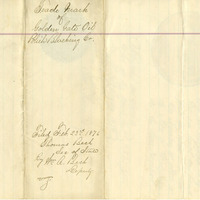 Trade Mark
of
Golden Gate Oil
Blacking Co.
Filed Feb 23rd 1876
Thomas Beck
Sec of State
By Wm A. Beck
Deputy